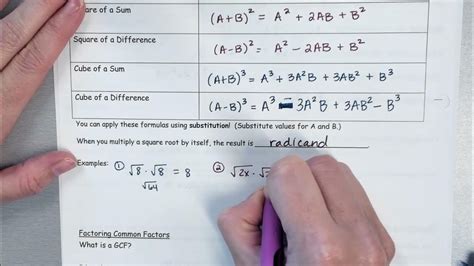 are of a Sum (A+B)² = A² + 2AB + B²
Square of a Difference (A-B)² = A² - 2AB + B²
Cube of a Sum (A+B)³ = A³ + 3A²B + 3AB² + B³
Cube of a Difference (A-B)³ = A³ - 3A²B + 3AB² - B³
You can apply these formulas using substitution! (Substitute values for A and B.)
When you multiply a square root by itself, the result is radicand
Examples: ① √8 · √8 = 8 ② √2x · √
√64
Factoring Common Factors
What is a GCF?